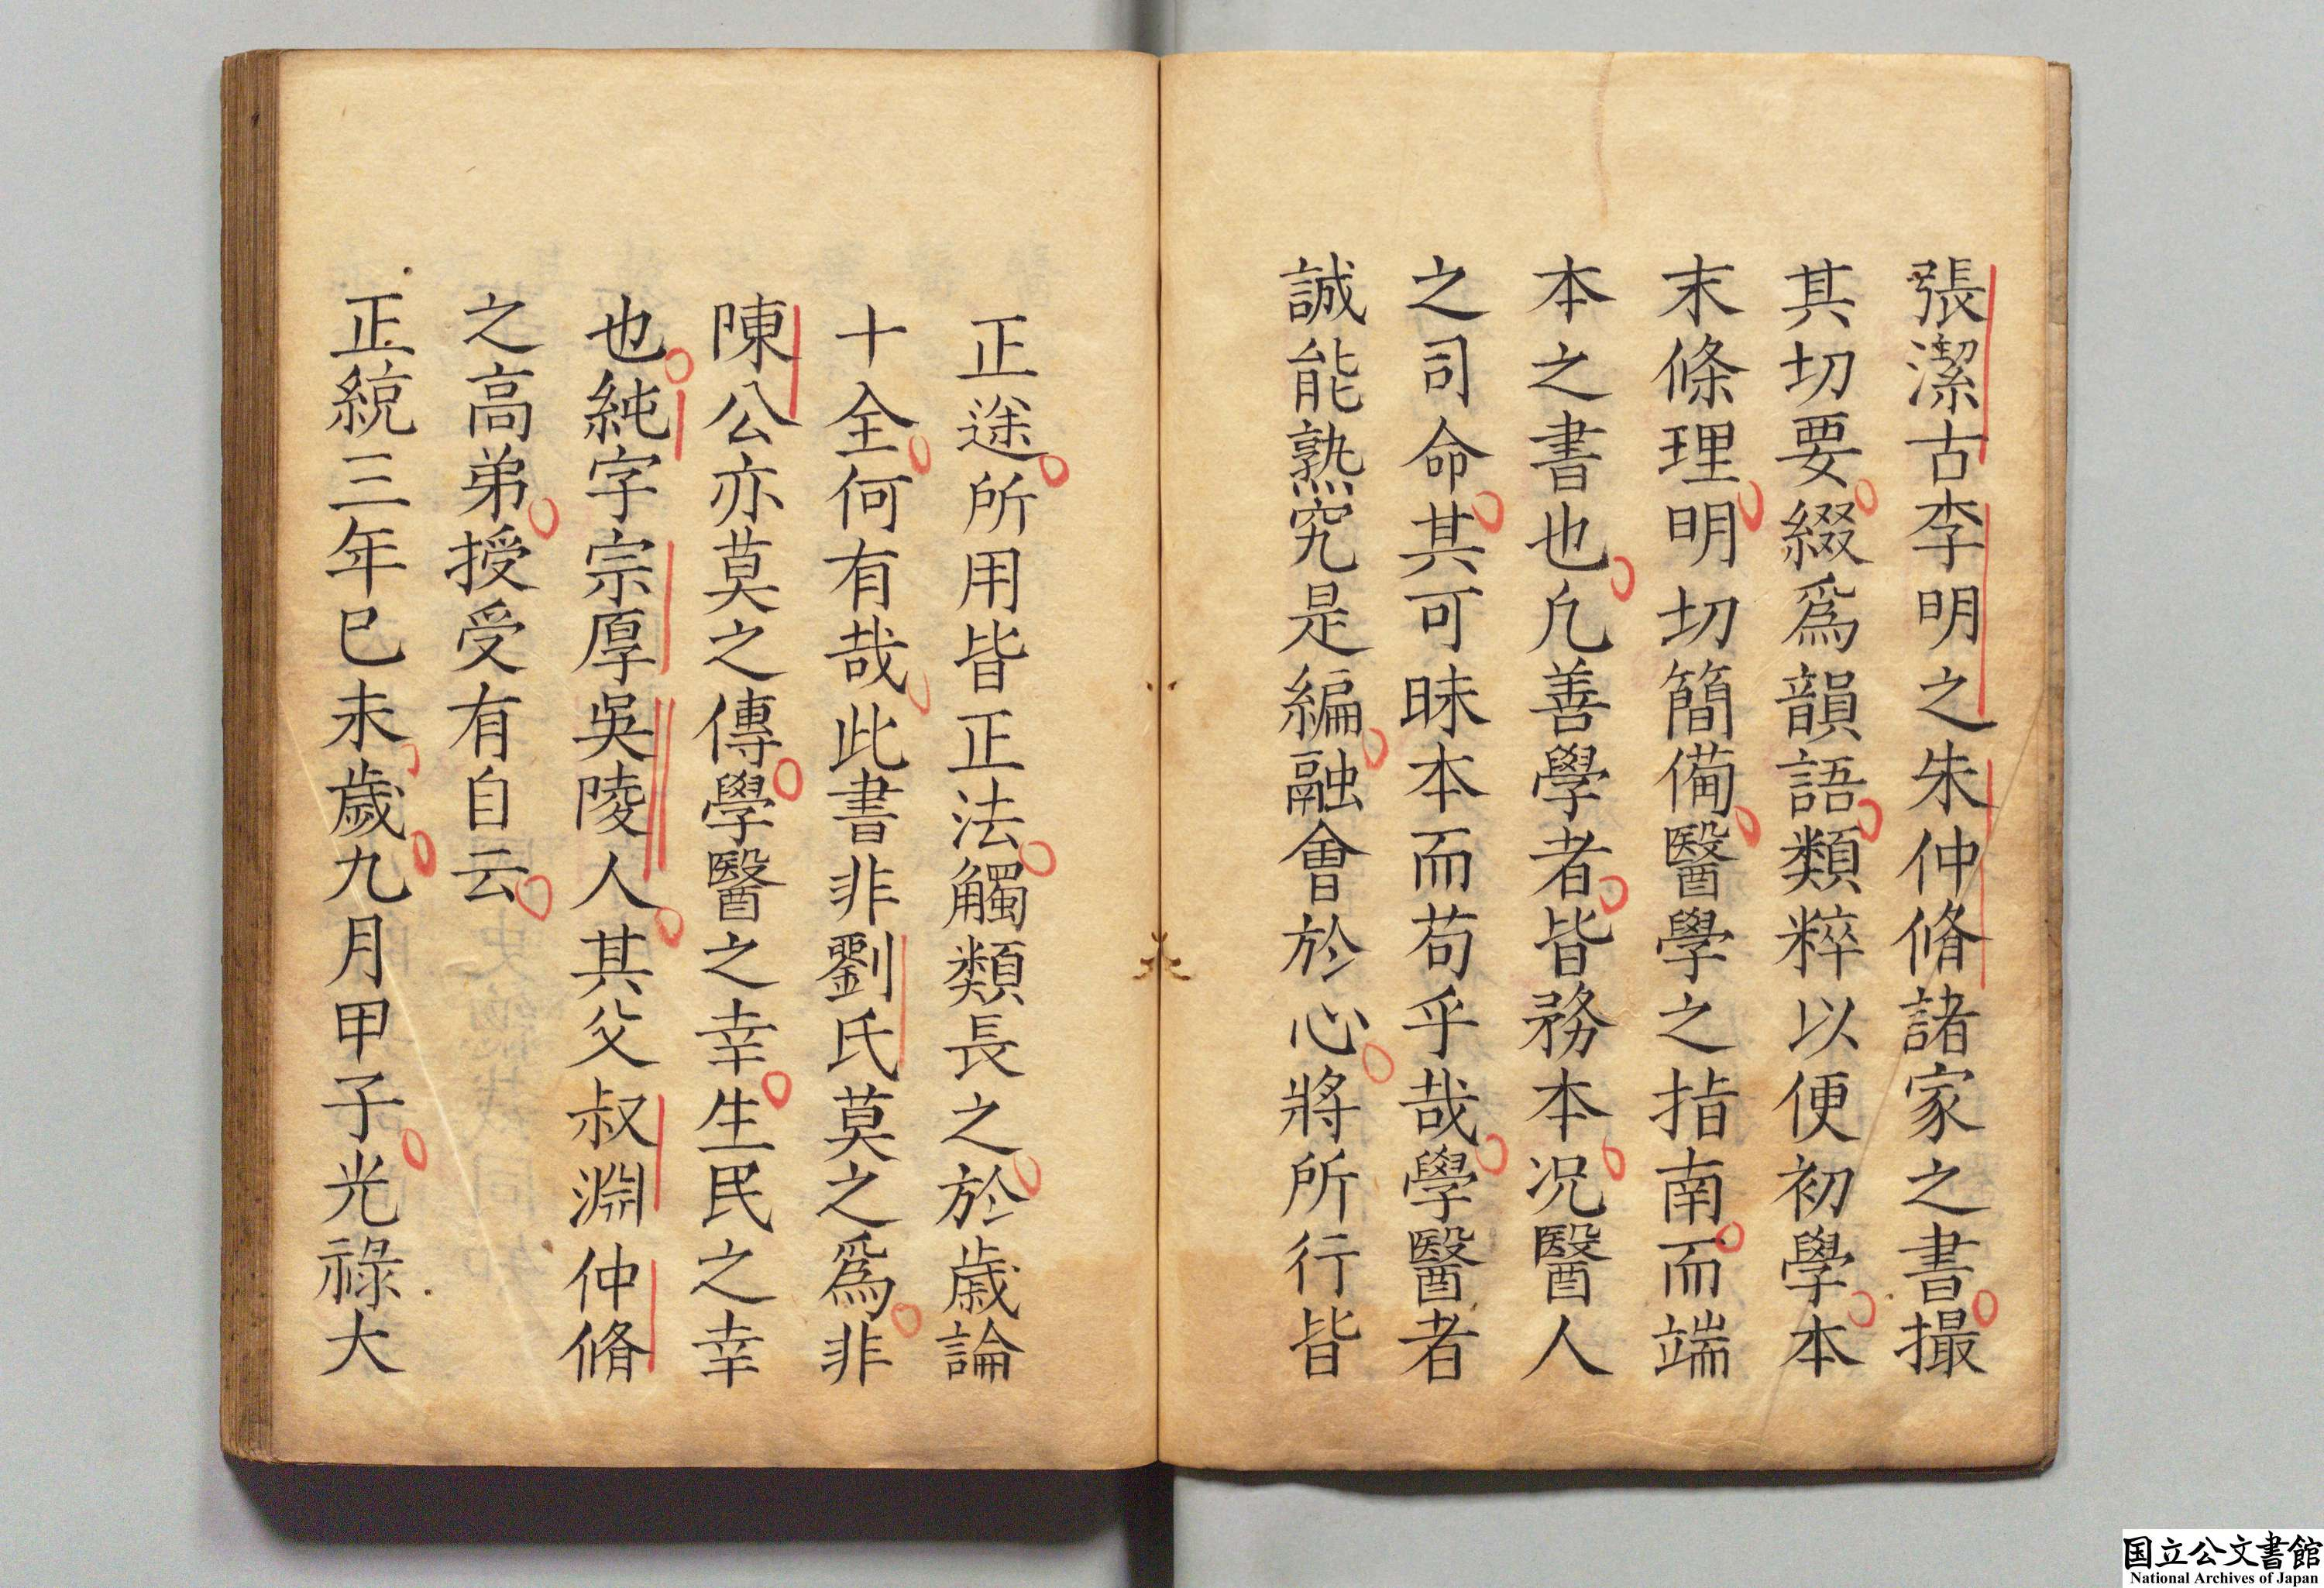 張潔古李明之朱仲脩諸家之書撮
其切要綴爲韻語類粹以便初學本
末條理明切簡備醫學之指南而端
本之書也凢善學者皆務本况醫人
之司命其可昧本而苟乎哉學醫者
誠能熟究是編融會於心將所行皆
正途所用皆正法觸類長之於歳論
十全何有哉此書非劉氏莫之爲非
陳公亦莫之傳學醫之幸生民之幸
也純字宗厚吳陵人其父叔淵仲脩
之高弟授受有自云
正統三年巳未歲九月甲子光祿大
国立公文書館
National Archives of Japan